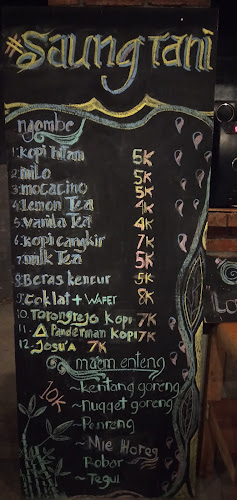 #Saung Tani
ngombe
1. Kopi Hitam 5K
2. milo 5K
3. mocacino 5K
4. Lemon Tea 4K
5. Vanila Tea 4K
6. Kopi cangkir 7K
7. milk Tea 5K
8. Beras kencur 5K
9. Coklat + WAFER 8K
10. Torongrejo Kopi 7K
11. Panderman KOPI 7K
12. Josu'a 7K
maem enteng
10K
~ Kentang goreng
~ Nugget goreng
~ Penreng
~ Mie Horeg
Robar
~ Tegul
Lo